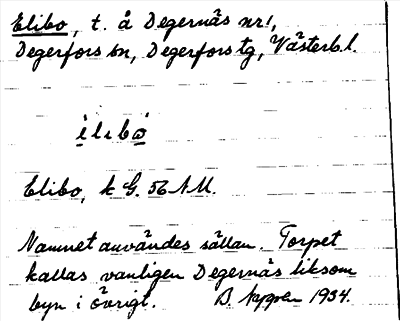 Elibo, t. å Degernäs nr 1,
Degerfors sn, Degerfors tg, Västerb. l.
elibo
Elibo, k G. 56 NU.
Namnet användes sällan. Torpet
kallas vanligen Degernäs liksom
byn i övrigt. B. 1934.